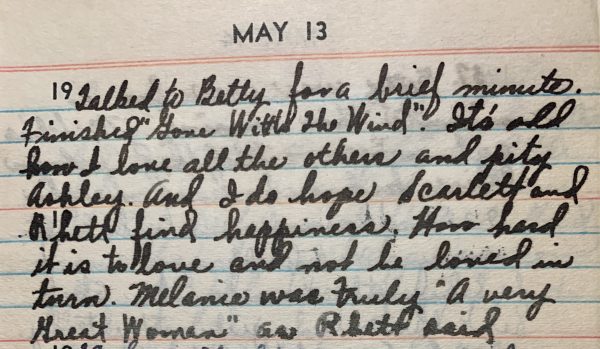 MAY 13
19 Talked to Betty for a brief minute.
Finished "Gone With The Wind". It's odd
how I love all the others and pity
Ashley. And I do hope Scarlett and
Rhett find happiness. How hard
it is to love and not be loved in
turn. Melanie was truly "A very
Great Woman" as Rhett said